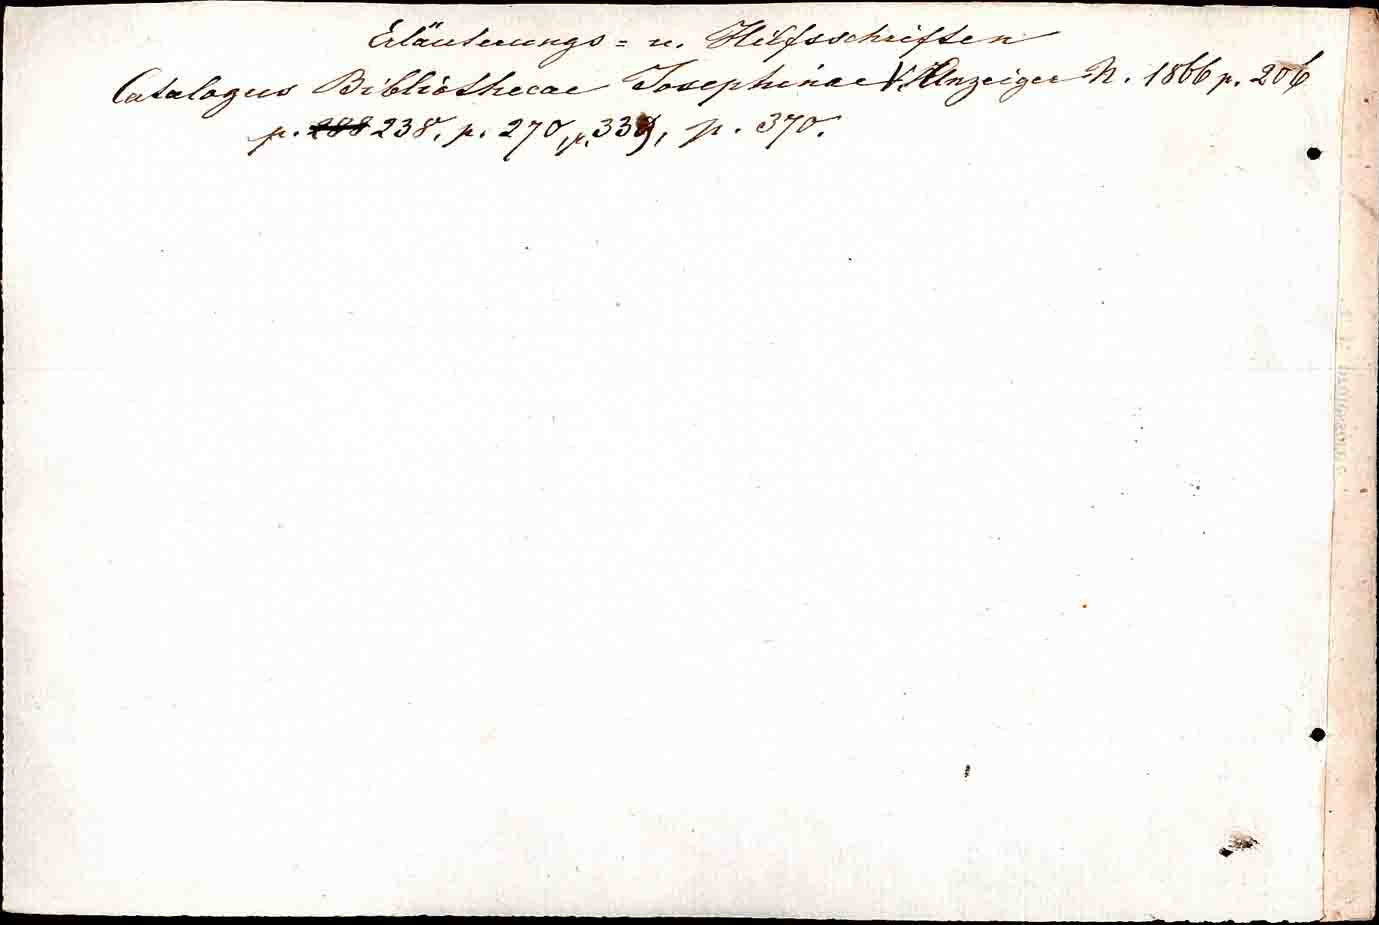 Erläuterungs = u. Hilfsschriften
Catalogus Bibliothecae Josephinae V. Anzeiger N. 1866 p. 206
p. 288 238. p. 270, p. 339, p. 370.